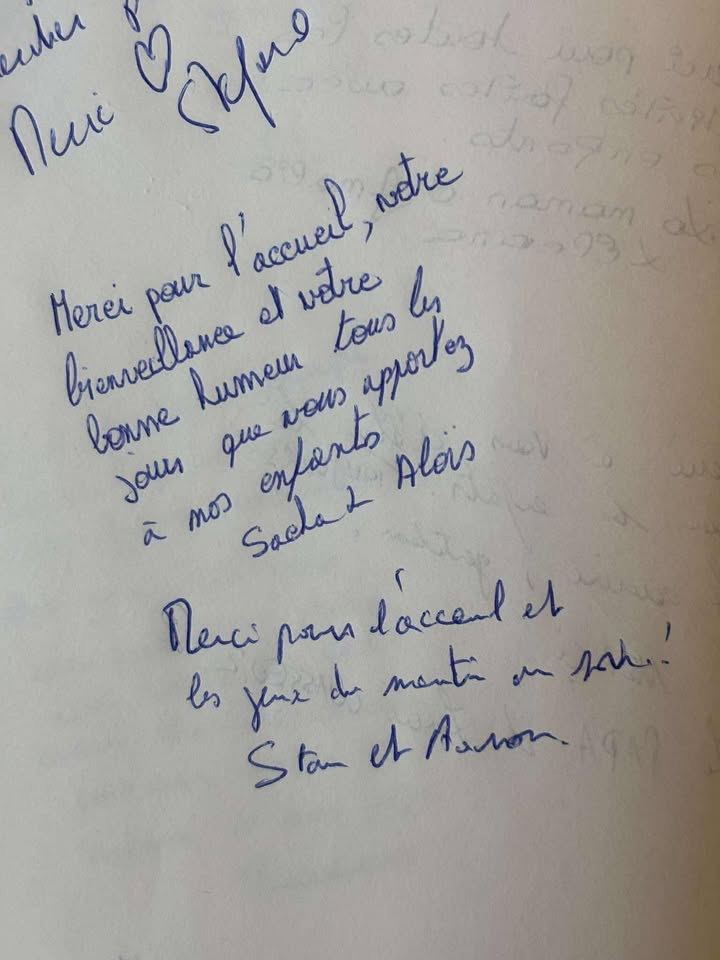 Merci ♡
Merci pour l'accueil, votre
bienveillance et votre
bonne humeur tous les
jours que vous apportez
à nos enfants
Sacha & Aloïs
Merci pour l'accueil et
les jeux du matin au soir !
Stan et